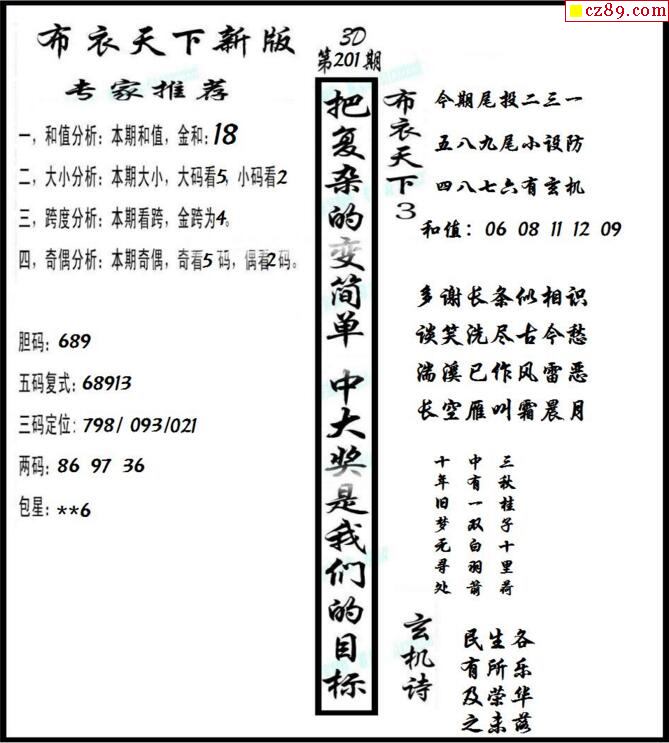 cz89.com
布衣天下新版
专家推荐
一，和值分析：本期和值，金和：18
二，大小分析：本期大小，大码看5，小码看2
三，跨度分析：本期看跨，金跨为4。
四，奇偶分析：本期奇偶，奇看5码，偶看2码。
胆码：689
五码复式：68913
三码定位：798/ 093/021
两码：86 97 36
包星：**6
3D
第201期
把复杂的变简单 中大奖是我们的目标
布衣天下3
今期尾投二三一
五八九尾小设防
四八七六有玄机
和值：06 08 11 12 09
多谢长条似相识
谈笑洗尽古今愁
湍溪已作风雷恶
长空雁叫霜晨月
三秋桂子十里荷
中有一双白羽箭
十年旧梦无寻处
玄机诗
各乐华落
生所荣未
民有及之